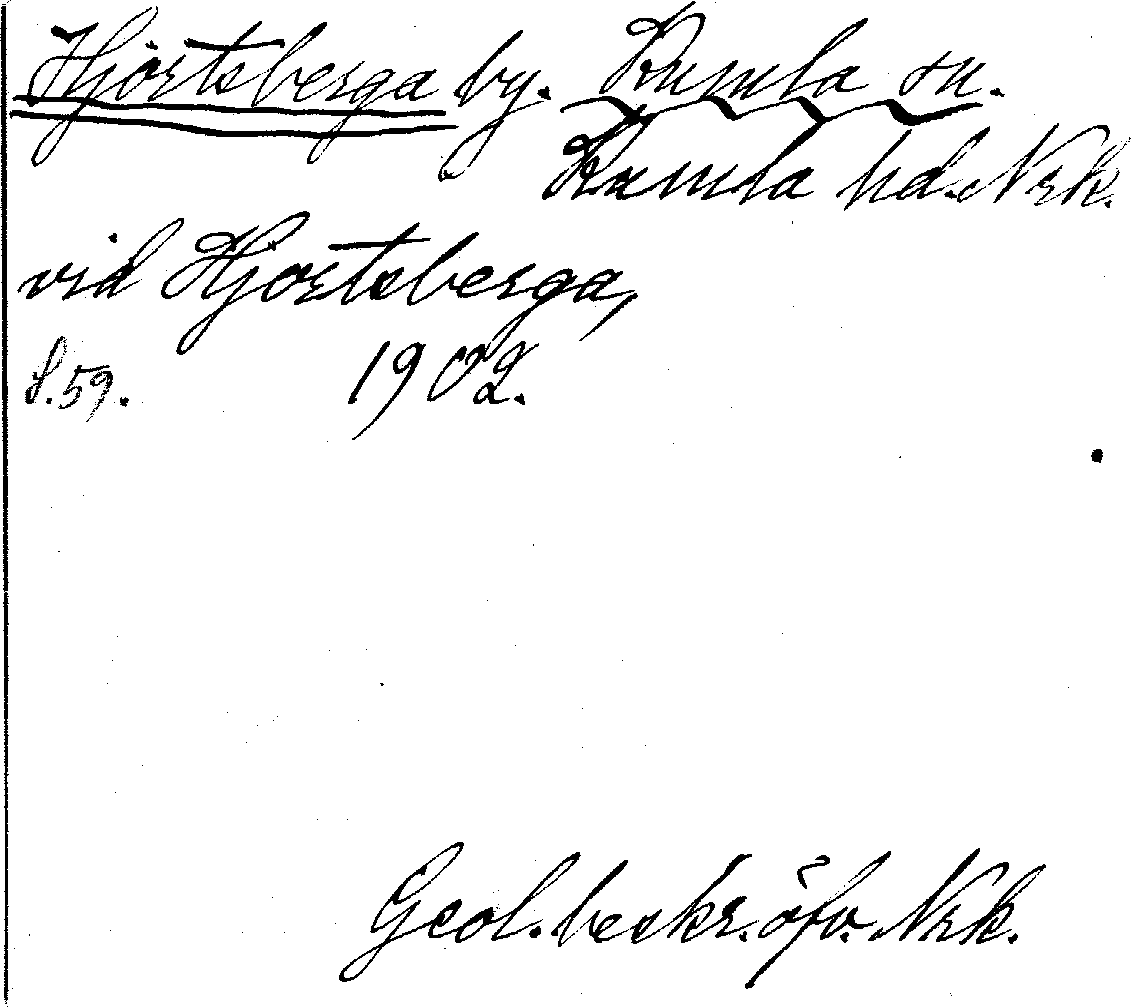 Hjortsberga by. Kumla sn.
Kumla hd. Nrk.
vid Hjortsberga,
S.59. 1902.
Geol. beskr. öfv. Nrk.